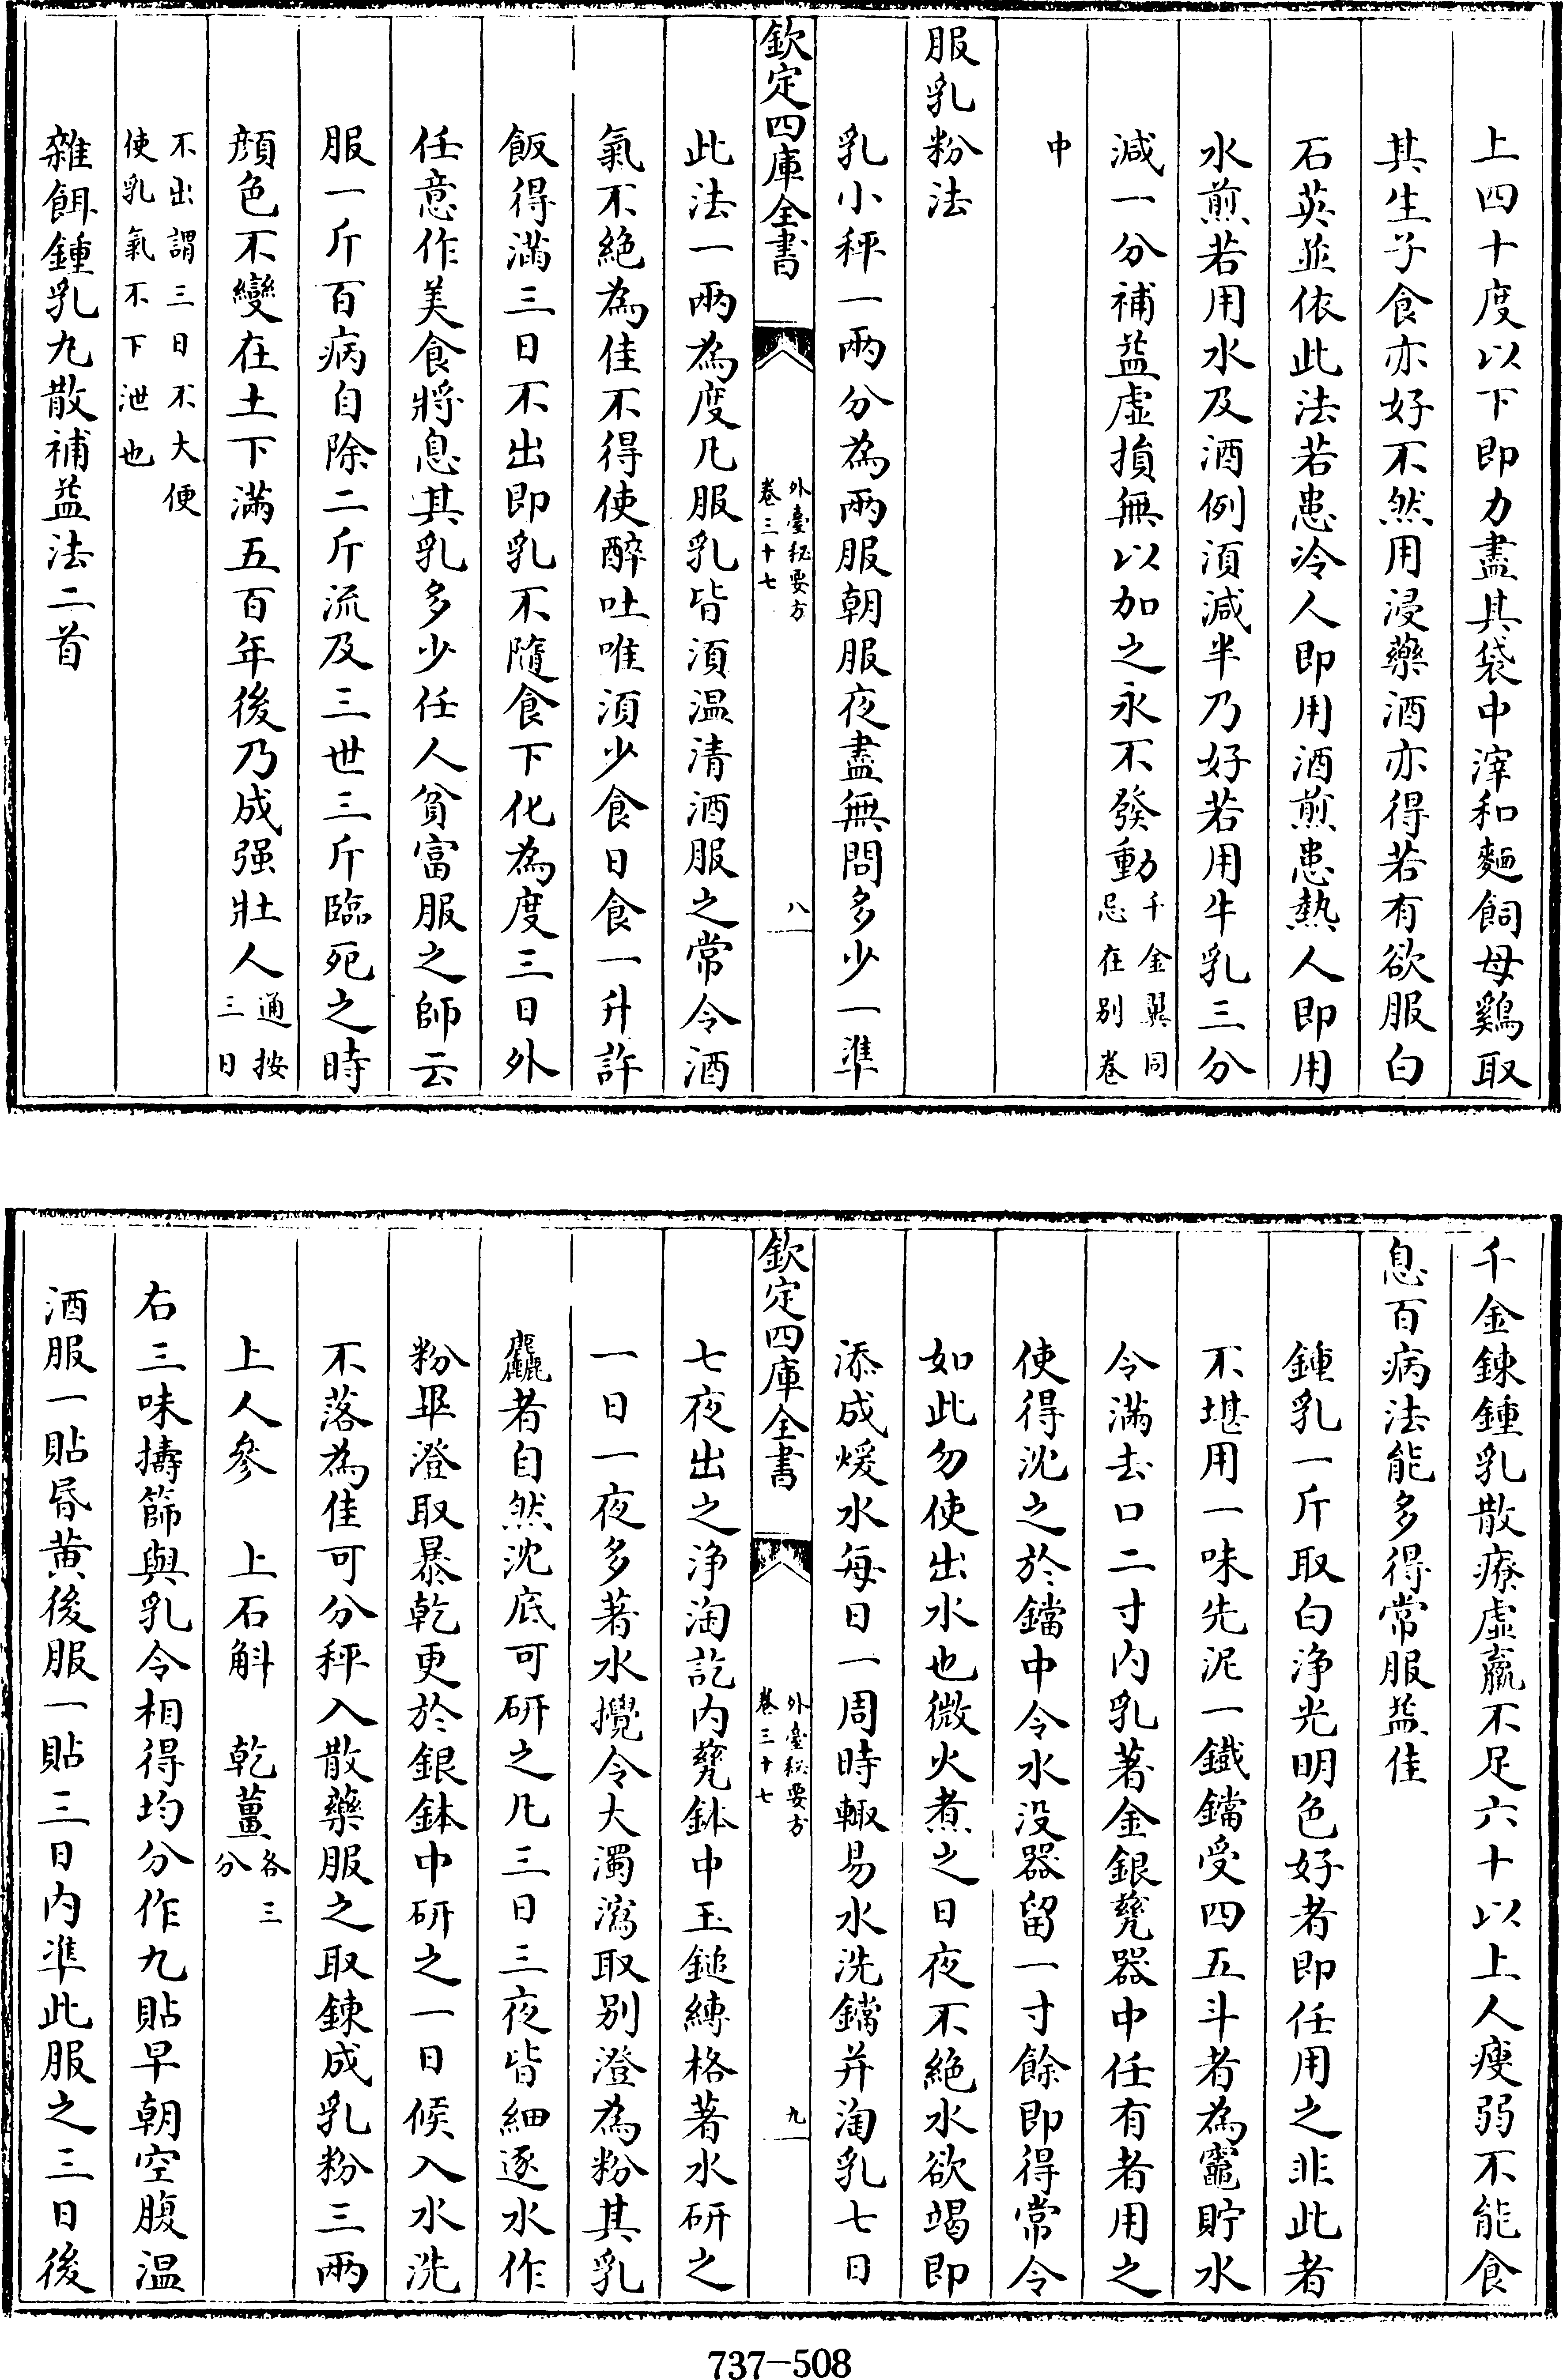 上四十度以下即力盡其袋中滓和麵飼母鷄取
其生子食亦好不然用浸藥酒亦得若有欲服白
石英並依此法若患冷人即用酒煎患熱人即用
水煎若用水及酒例須減半乃好若用牛乳三分
減一分補益虛損無以加之永不發動千金翼同忌在别卷
中
服乳粉法
乳小秤一兩分為兩服朝服夜盡無問多少一準
欽定四庫全書
外臺秘要方
卷三十七
八
此法一兩為度凡服乳皆須温清酒服之常令酒
氣不絶為佳不得使醉吐唯須少食日食一升許
飯得滿三日不出即乳不隨食下化為度三日外
任意作美食將息其乳多少任人貧富服之師云
服一斤百病自除二斤流及三世三斤臨死之時
顔色不變在土下滿五百年後乃成强壯人通按三日
不出謂三日不大便
使乳氣不下泄也
雜餌鍾乳丸散補益法二首
千金鍊鍾乳散療虛羸不足六十以上人瘦弱不能食
息百病法能多得常服益佳
鍾乳一斤取白浄光明色好者即任用之非此者
不堪用一味先泥一鐵鐺受四五斗者為竈貯水
令滿去口二寸内乳著金銀甆器中任有者用之
使得沈之於鐺中令水没器留一寸餘即得常令
如此勿使出水也微火煮之日夜不絶水欲竭即
添成煖水每日一周時輙易水洗鐺并淘乳七日
欽定四庫全書
外臺秘要方
卷三十七
九
七夜出之浄淘訖内甆鉢中玉鎚縳格著水研之
一日一夜多著水攪令大濁瀉取别澄為粉其乳
麤者自然沈底可研之凡三日三夜皆細逐水作
粉畢澄取暴乾更於銀鉢中研之一日候入水洗
不落為佳可分秤入散藥服之取鍊成乳粉三兩
上人參　上石斛　乾薑各三分
右三味擣篩與乳令相得均分作九貼早朝空腹温
酒服一貼昏黄後服一貼三日内準此服之三日後
737-508